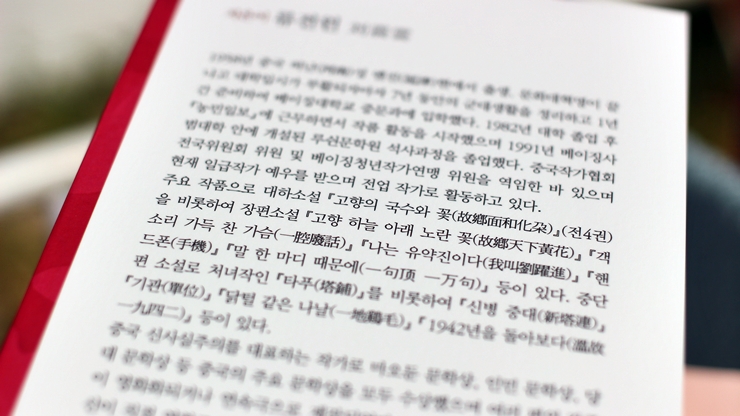 지은이 류전윈 劉震雲
1958년 중국 허난(河南)성 옌진(延津)현에서 출생. 문화대혁명이 끝
나고 대학입시가 부활되자마자 7년 동안의 군대생활을 정리하고 1년
간 준비하여 베이징대학교 중문과에 입학했다. 1982년 대학 졸업 후
『농민일보』에 근무하면서 작품 활동을 시작했으며 1991년 베이징사
범대학 안에 개설된 루쉰문학원 석사과정을 졸업했다. 중국작가협회
전국위원회 위원 및 베이징청년작가연맹 위원을 역임한 바 있으며
현재 일급작가 예우를 받으며 전업 작가로 활동하고 있다.
주요 작품으로 대하소설 『고향의 국수와 꽃(故鄕面和化朶)』(전4권)
을 비롯하여 장편소설 『고향 하늘 아래 노란 꽃(故鄕天下黃花)』 『객
소리 가득 찬 가슴(一腔廢話)』 『나는 유약진이다(我叫劉躍進)』 『핸
드폰(手機)』 『말 한 마디 때문에(一句頂 一万句)』 등이 있다. 중단
편 소설로 처녀작인 『타푸(塔鋪)』를 비롯하여 『신병 중대(新塔連)』
『기관(單位)』 『닭털 같은 나날(一地鷄毛)』 『1942년을 돌아보다(溫故
一九四二)』 등이 있다.
중국 신사실주의를 대표하는 작가로 마오둔 문학상, 인민 문학상, 당
대 문학상 등 중국의 주요 문학상을 모두 수상했으며 여러 편의 작품
이 영화화되거나 연속극으로